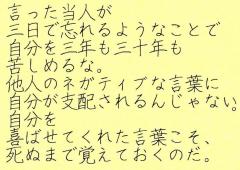 言った当人が
三日で忘れるようなことで
自分を三年も三十年も
苦しめるな。
他人のネガティブな言葉に
自分が支配されるんじゃない。
自分を
喜ばせてくれた言葉こそ、
死ぬまで覚えておくのだ。